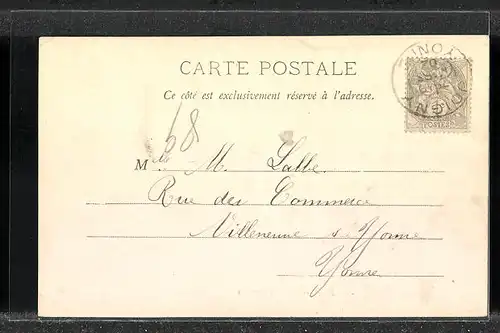 CARTE POSTALE
Ce côté est exclusivement réservé à l'adresse.
68
Mlle M. Lalbe.
Rue du Commerce
Villeneuve s/ Yonne
Yonne
JOIGNY
YONNE
POSTES